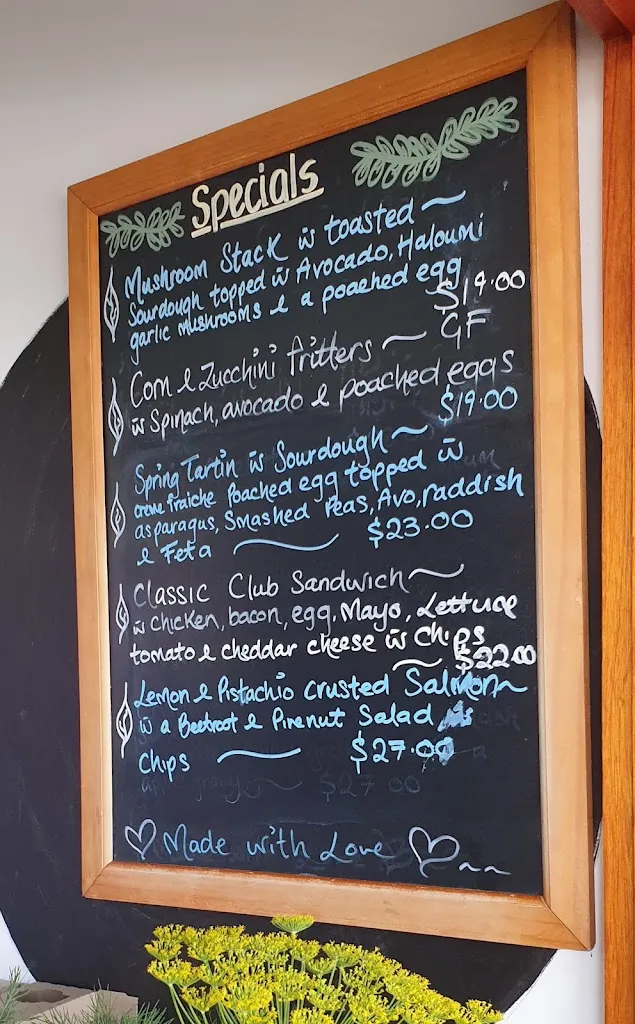 Specials
Mushroom Stack w̄ toasted ~
Sourdough topped w̄ Avocado, Haloumi
garlic mushrooms & a poached egg
$19.00
Corn & Zucchini fritters ~ GF
w̄ Spinach, avocado & poached eggs
$19.00
Spring Tartin w̄ Sourdough ~
creme fraiche Poached egg topped w̄
asparagus, Smashed Peas, Avo, raddish
& Feta ~ $23.00
Classic Club Sandwich ~
w̄ chicken, bacon, egg, Mayo, Lettuce
tomato & cheddar cheese w̄ chips
~ $22.00
Lemon & Pistachio crusted Salmon ~
w̄ a Beetroot & Pinenut Salad
chips ~ $27.00
$27.00
♡ Made with Love ♡ ~~